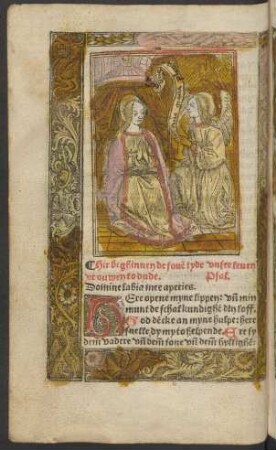 Hir beghinnen de souē tyde unser leuen
vrouwen to dude. Psal.
Domine labia mea aperies.
HEre opene myne lippen: vn̄ min
munt de schal kundighē dyn loff.
God dēcke an myne hulpe: here
snelle dy my to helpende. Ere sy
dem vadere vn̄ dem sone vn̄ dem hyllighē